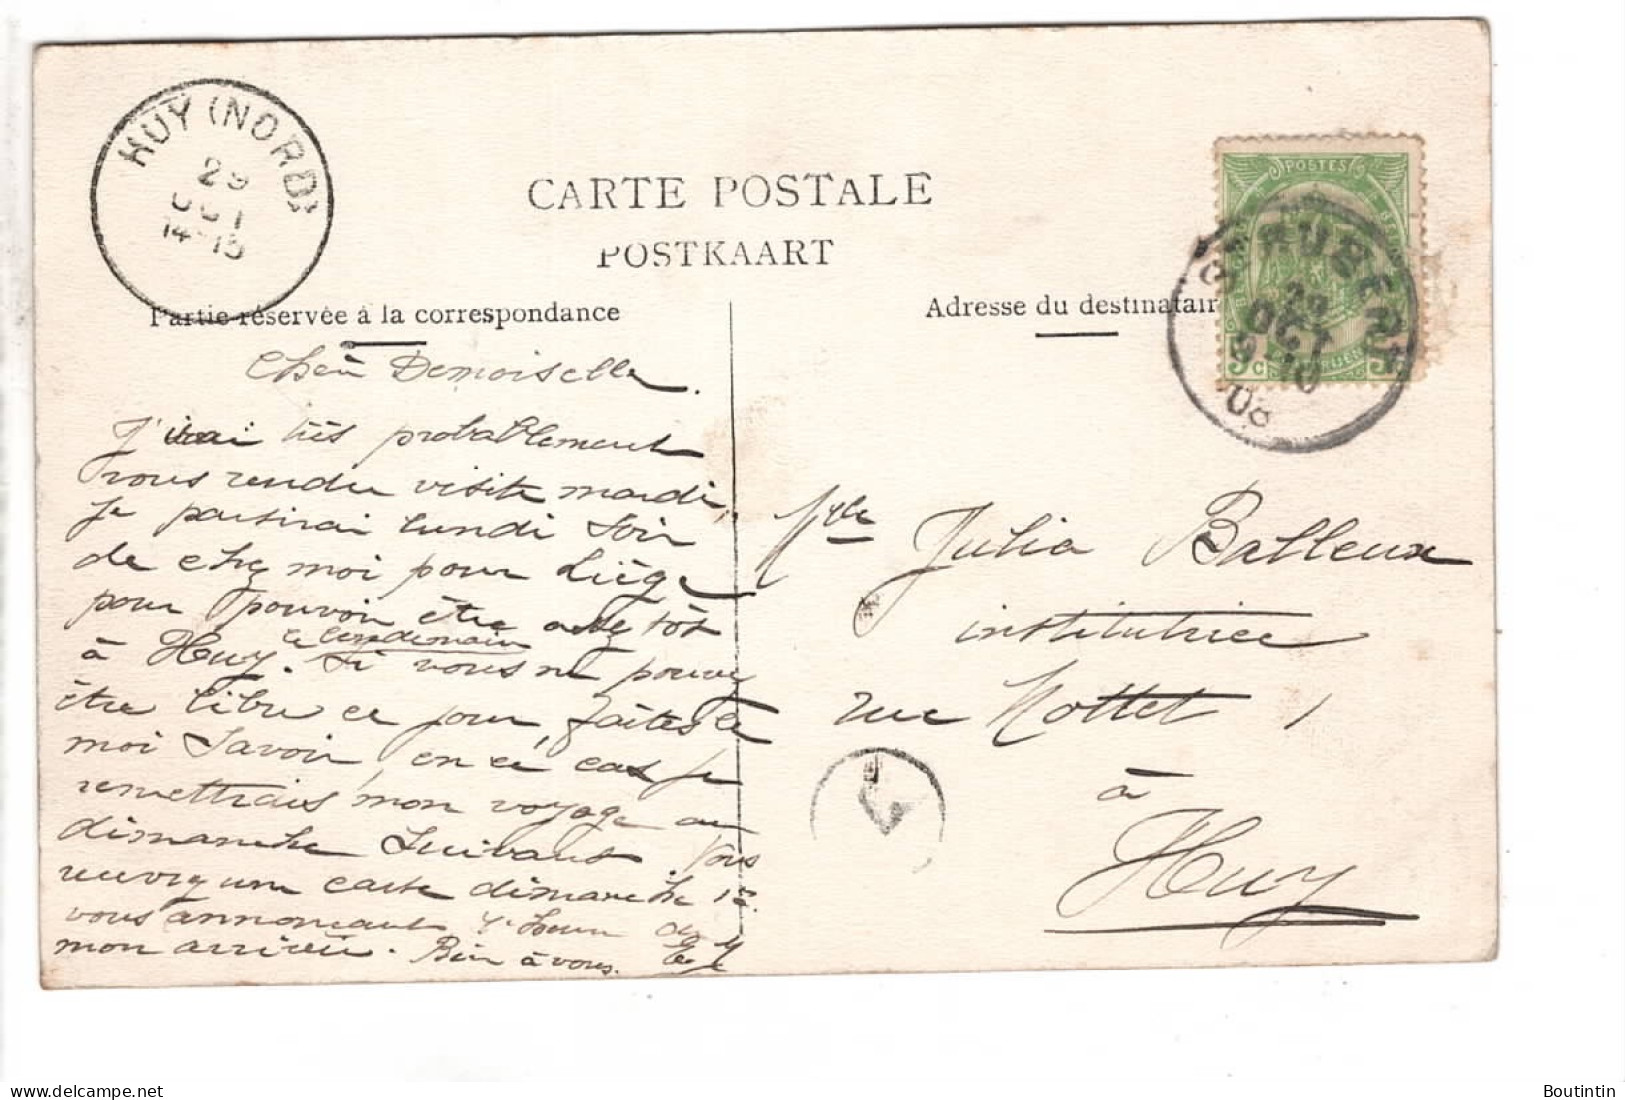 HUY (NORD)
29
OCT
14-15
CARTE POSTALE
POSTKAART
Partie réservée à la correspondance
Adresse du destinatair
POSTES
29
OCT
9-10
08
Chère Demoiselle.
J'irai très probablement
vous rendre visite mardi,
je partirai lundi soir
de chez moi pour Liège
pour pouvoir être assez tôt
le lendemain
à Huy. Si vous ne pouvez
être libre ce jour, faites le
moi savoir, en ce cas je
remettrais mon voyage au
dimanche suivant. Vous
recevrez une carte dimanche
vous annonçant l'heure de
mon arrivée. Bien à vous.
Mlle Julia Balleux
institutrice
rue Mottet 1
à
Huy
Boutintin